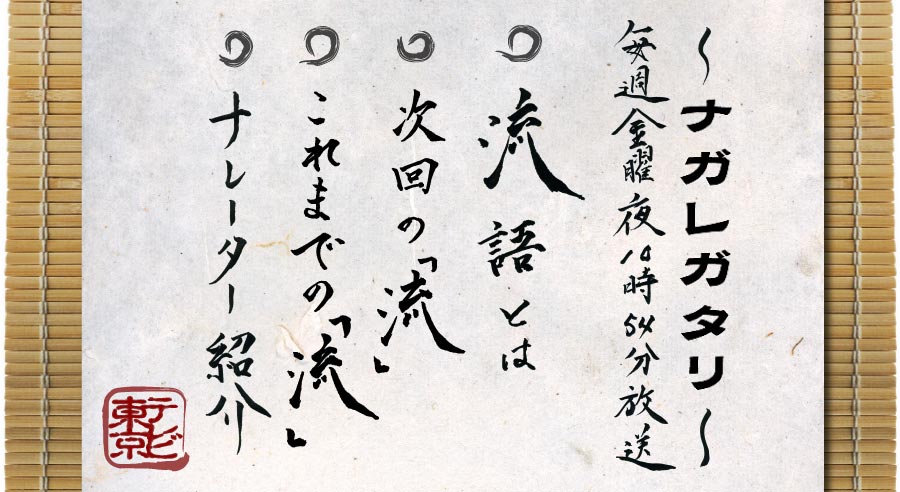 ～ナガレガタリ～
毎週金曜夜10時54分放送
流語とは
次回の「流」
これまでの「流」
ナレーター紹介
テレビ東京